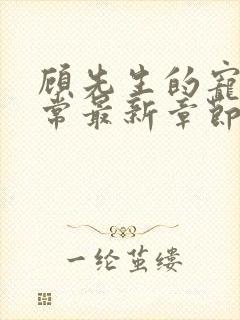 顾先生的寵
常最新章節
一纶茧缕